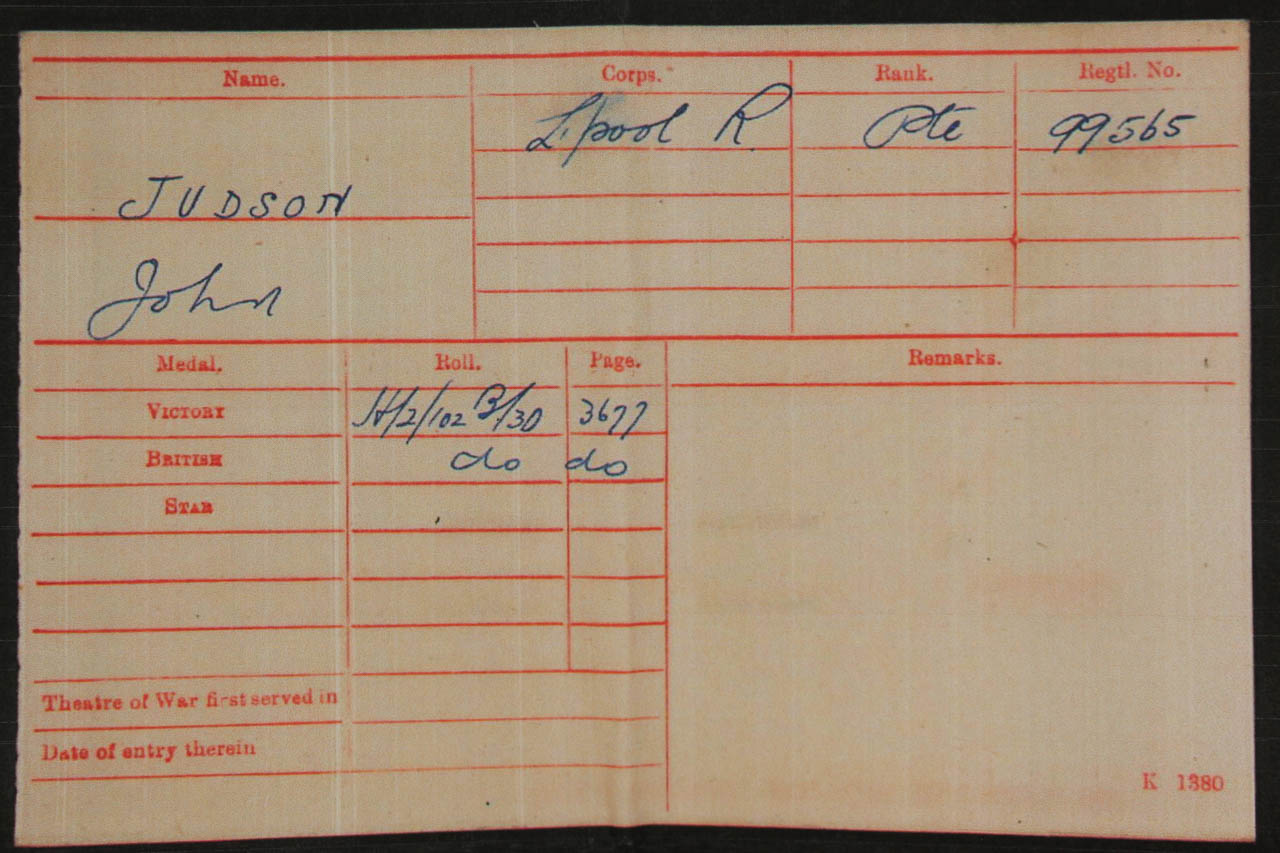 Name. Corps. Rank. Regtl. No.
L'pool R. Pte 99565
JUDSON
John
Medal. Roll. Page. Remarks.
VICTORY H/2/102 B/30 3677
BRITISH do do
STAR
Theatre of War first served in
Date of entry therein
K 1380